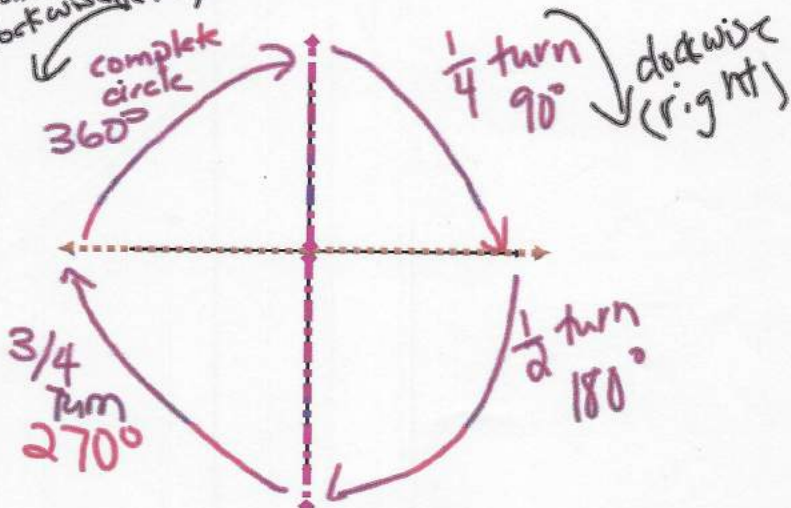 complete
circle
360°
1/4 turn
90°
clockwise
(right)
1/2 turn
180°
3/4
Turn
270°